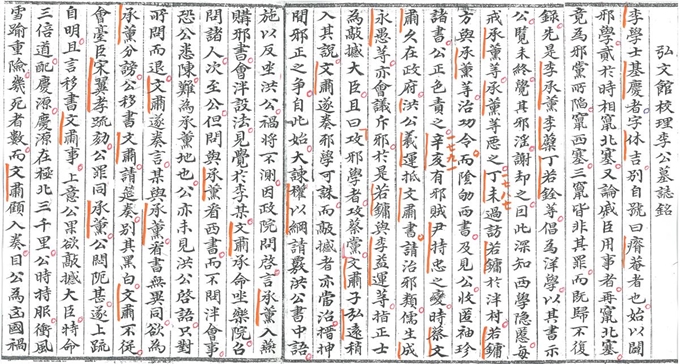 弘文館校理李公墓誌銘
李學士基慶者字休吉別自號曰瘠菴者也始以闢
邪學貳於時相竄北塞又論戚臣用事者再竄北塞
竟為邪黨所陷竄西塞三竄皆非其罪而旣歸不復
錄先是李承薰李檗丁若銓等倡為洋學以其書示
公覽未終覺其邪淫謝却之因此深知西學隱慝每
一七八七
戒承薰等承薰等惡之丁未過訪若鏞於泮村若鏞
方與承薰等治功令而陰劬西書及見公收匿袖珍
一七九一
諸書公正色責之辛亥有邪賊尹持忠之變時蔡文
肅久在政府洪公羲運抵文肅書請治邪類儒生成
永愚等亦會議斥邪於是若鏞與李益運等指正士
為敲撼大臣且曰攻邪學者攻蔡黨文肅子弘遠積
入其說文肅遂奏邪學可誅而敲撼者亦當治搢紳
間邪正之爭自此始大諫權以綱請覈洪公書中語
施以反坐洪公禍將不測因政院問啓言承薰入燕
購邪書會泮設法見覺於李某文肅承命坐樂院召
問諸人次至公但問與承薰看西書而不問泮會事
恐公悉陳難為承薰地也公亦未見洪公啓語只對
所問而退文肅遂奏言某與承薰看書無異同欲為
承薰分謗公移書文肅請筵奏別其黑白文肅不從
會臺臣宋翼孝疏劾公罪同承薰公悶阨甚遂上疏
自明且言移書文肅事上意公果欲敲撼大臣特命
三倍道配慶源慶源在極北三千里公時持服衝風
雪踰重險幾死者數而文肅顧入奏目公為凶國禍